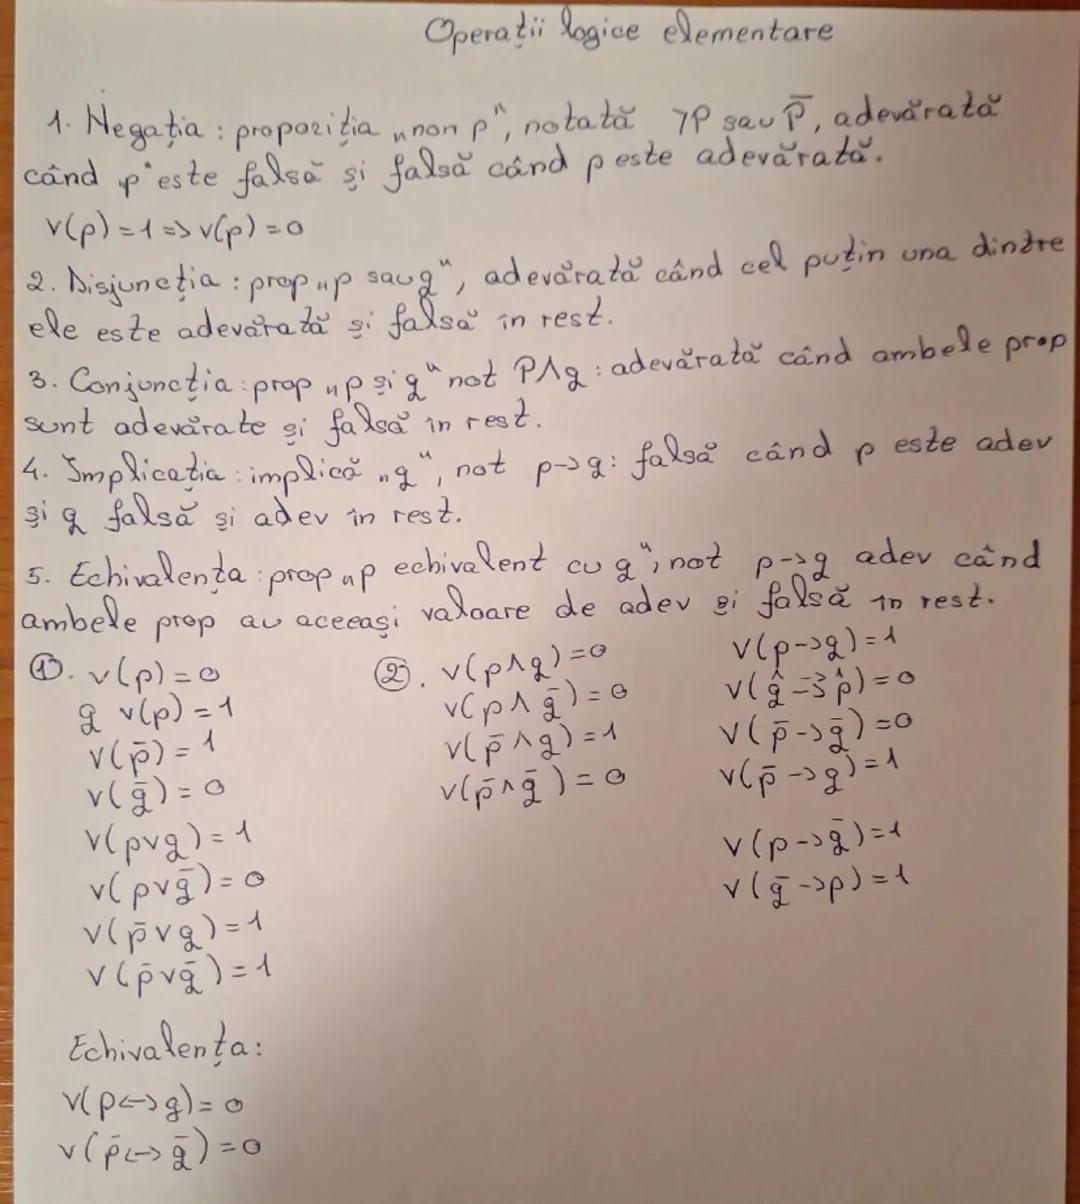 Operații logice elementare
1. Negația : propoziția „non p", notată ⌉P sau P̅, adevărată
când p este falsă și falsă când p este adevărată.
v(p) = 1 => v(p) = 0
2. Disjuncția : prop „p sau q", adevărată când cel puțin una dintre
ele este adevărată și falsă în rest.
3. Conjuncția : prop „p și q" not P∧q : adevărată când ambele prop
sunt adevărate și falsă în rest.
4. Implicația : implică „q", not p->q: falsă când p este adev
și q falsă și adev în rest.
5. Echivalența : prop „p echivalent cu q", not p->q adev când
ambele prop au aceeași valoare de adev și falsă în rest.
①. v(p) = 0
q v(p) = 1
v(p̅) = 1
v(q̅) = 0
v(p∨q) = 1
v(p∨q̅) = 0
v(p̅∨q) = 1
v(p̅∨q̅) = 1
②. v(p∧q) = 0
v(p∧q̅) = 0
v(p̅∧q) = 1
v(p̅∧q̅) = 0
v(p->q) = 1
v(q->p) = 0
v(p̅->q̅) = 0
v(p̅->q) = 1
v(p->q̅) = 1
v(q̅->p) = 1
Echivalența:
v(p<->q) = 0
v(p̅<->q̅) = 0